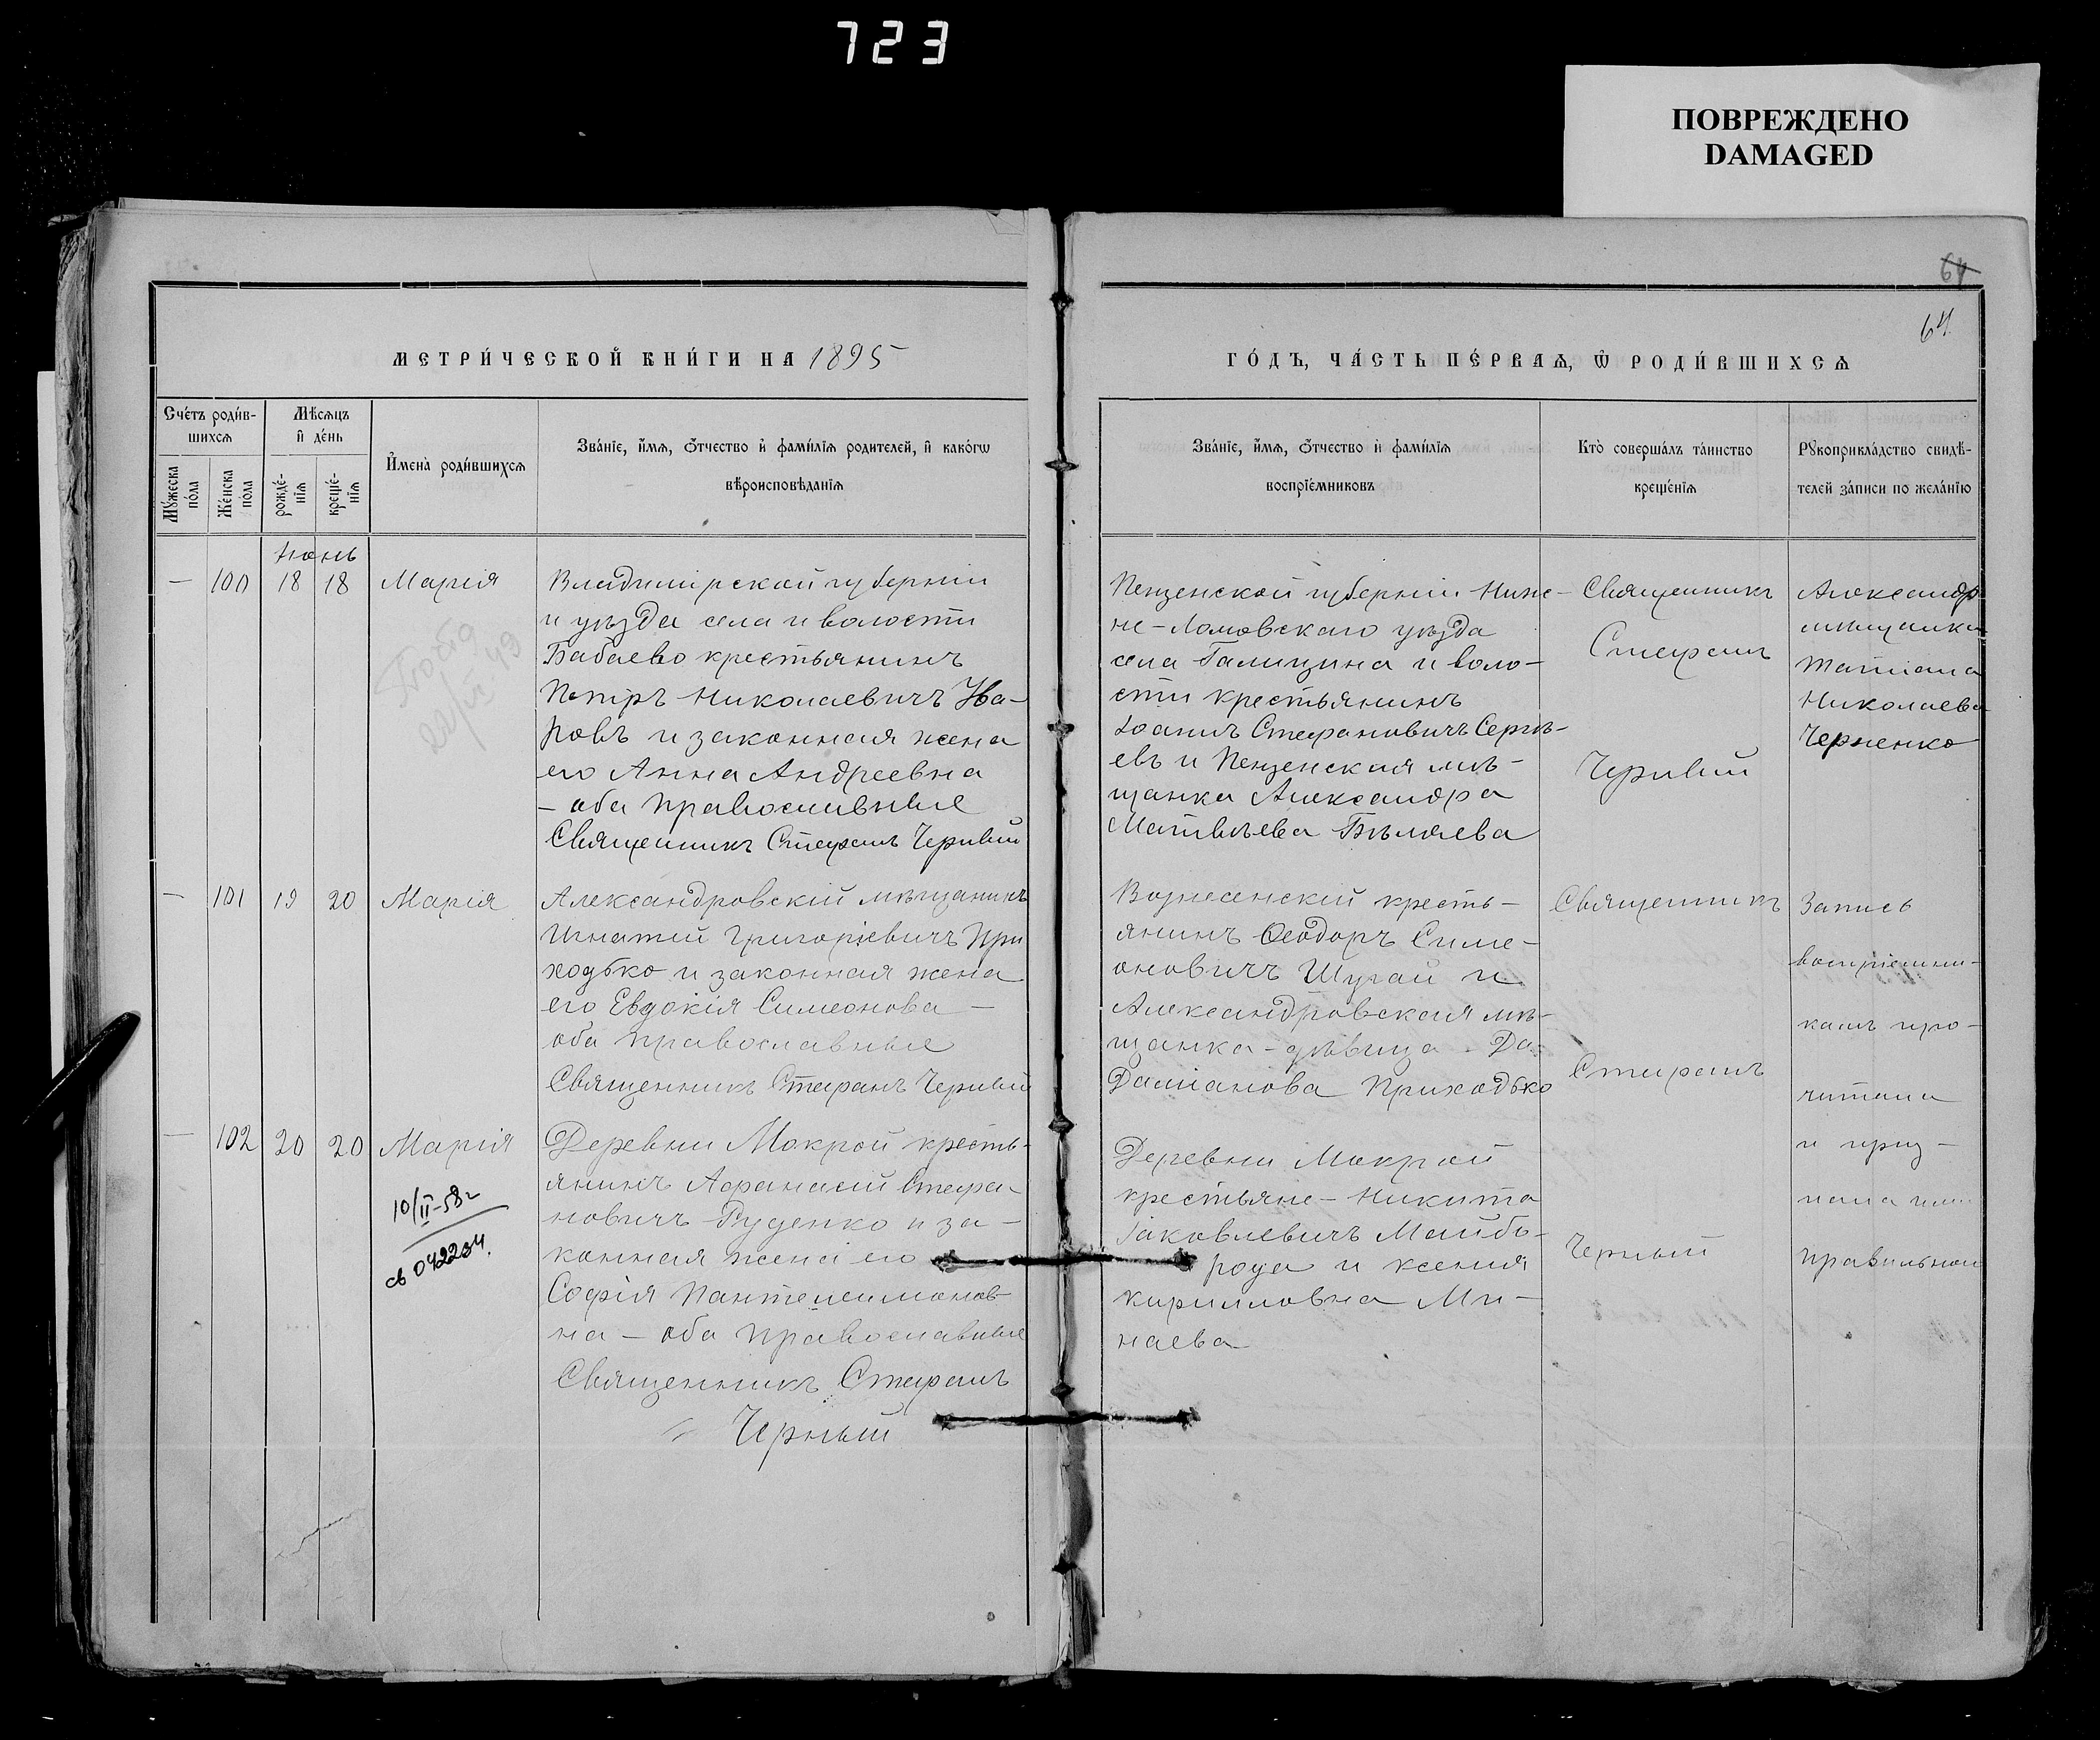 723
ПОВРЕЖДЕНО
DAMAGED
64
64
МЕТРИ́ЧЕСКОЙ КНИ́ГИ НА 1895
ГО́ДЪ, ЧА́СТЬ ПЕ́РВАѦ, Ѿ РОДИ́ВШИХСѦ
Сче́тъ роди́в-
шихсѧ
Мѣсѧцъ
и҆ де́нь
Мꙋ́жеска
по́ла
Же́нска
по́ла
рожде́-
нїѧ
креще́-
нїѧ
И҆мена̀ роди́вшихсѧ
Зва́нїе, и҆́мѧ, ѻ҆́тчество и҆ фами́лїѧ родителей, и҆ како́гѡ
вѣроисповѣ́данїѧ
Зва́нїе, и҆́мѧ, ѻ҆́тчество и҆ фами́лїѧ
воспрїе́мниковъ
Кто̀ соверша́лъ та́инство
креще́нїѧ
Рꙋкоприкла́дство свидѣ́-
телей за́писи по жела́нїю
Іюнь
— 100 18 18 Марія
Владимірской губерніи
и уѣзда села и волости
Бабаево крестьянинъ
Петръ Николаевичъ Ува-
ровъ и законная жена
его Анна Андреевна
— оба православные
Священникъ Стефанъ Черный
Пензенской губерніи Ниж-
не-Ломовскаго уѣзда
села Галицина и воло-
сти крестьянинъ
Іоаннъ Стефановичъ Сергѣ-
евъ и Пензенская мѣ-
щанка Александра
Матвѣева Бѣляева
Священникъ
Стефанъ
Черный
мѣщанка
Татіана
Николаева
Черненко
— 101 19 20 Марія
Александровскій мѣщанинъ
Игнатій Григоріевичъ При
ходько и законная жена
его Евдокія Симеонова —
оба православные
Священникъ Стефанъ Черный
Вознесенскій кресть-
янинъ Ѳеодоръ Симе-
оновичъ Шугай и
Александровская мѣ-
щанка-дѣвица - Да-
Даміанова Приходько
Священникъ
Стефанъ
Черный
Запись
воспріемни-
камъ про-
читана
и приз-
нана ими
правильной
— 102 20 20 Марія
10/II-58г
св 042234.
Деревни Мокрой кресть-
янинъ Афанасій Стефа-
новичъ Руденко и за-
конная жена его
Софія Пантелеимонов-
на — оба православные
Священникъ Стефанъ
Черный
Деревни Мокрой
крестьяне - Никита
Іаковлевичъ Майбо-
рода и Ксенія
Кирилловна Ми-
наева